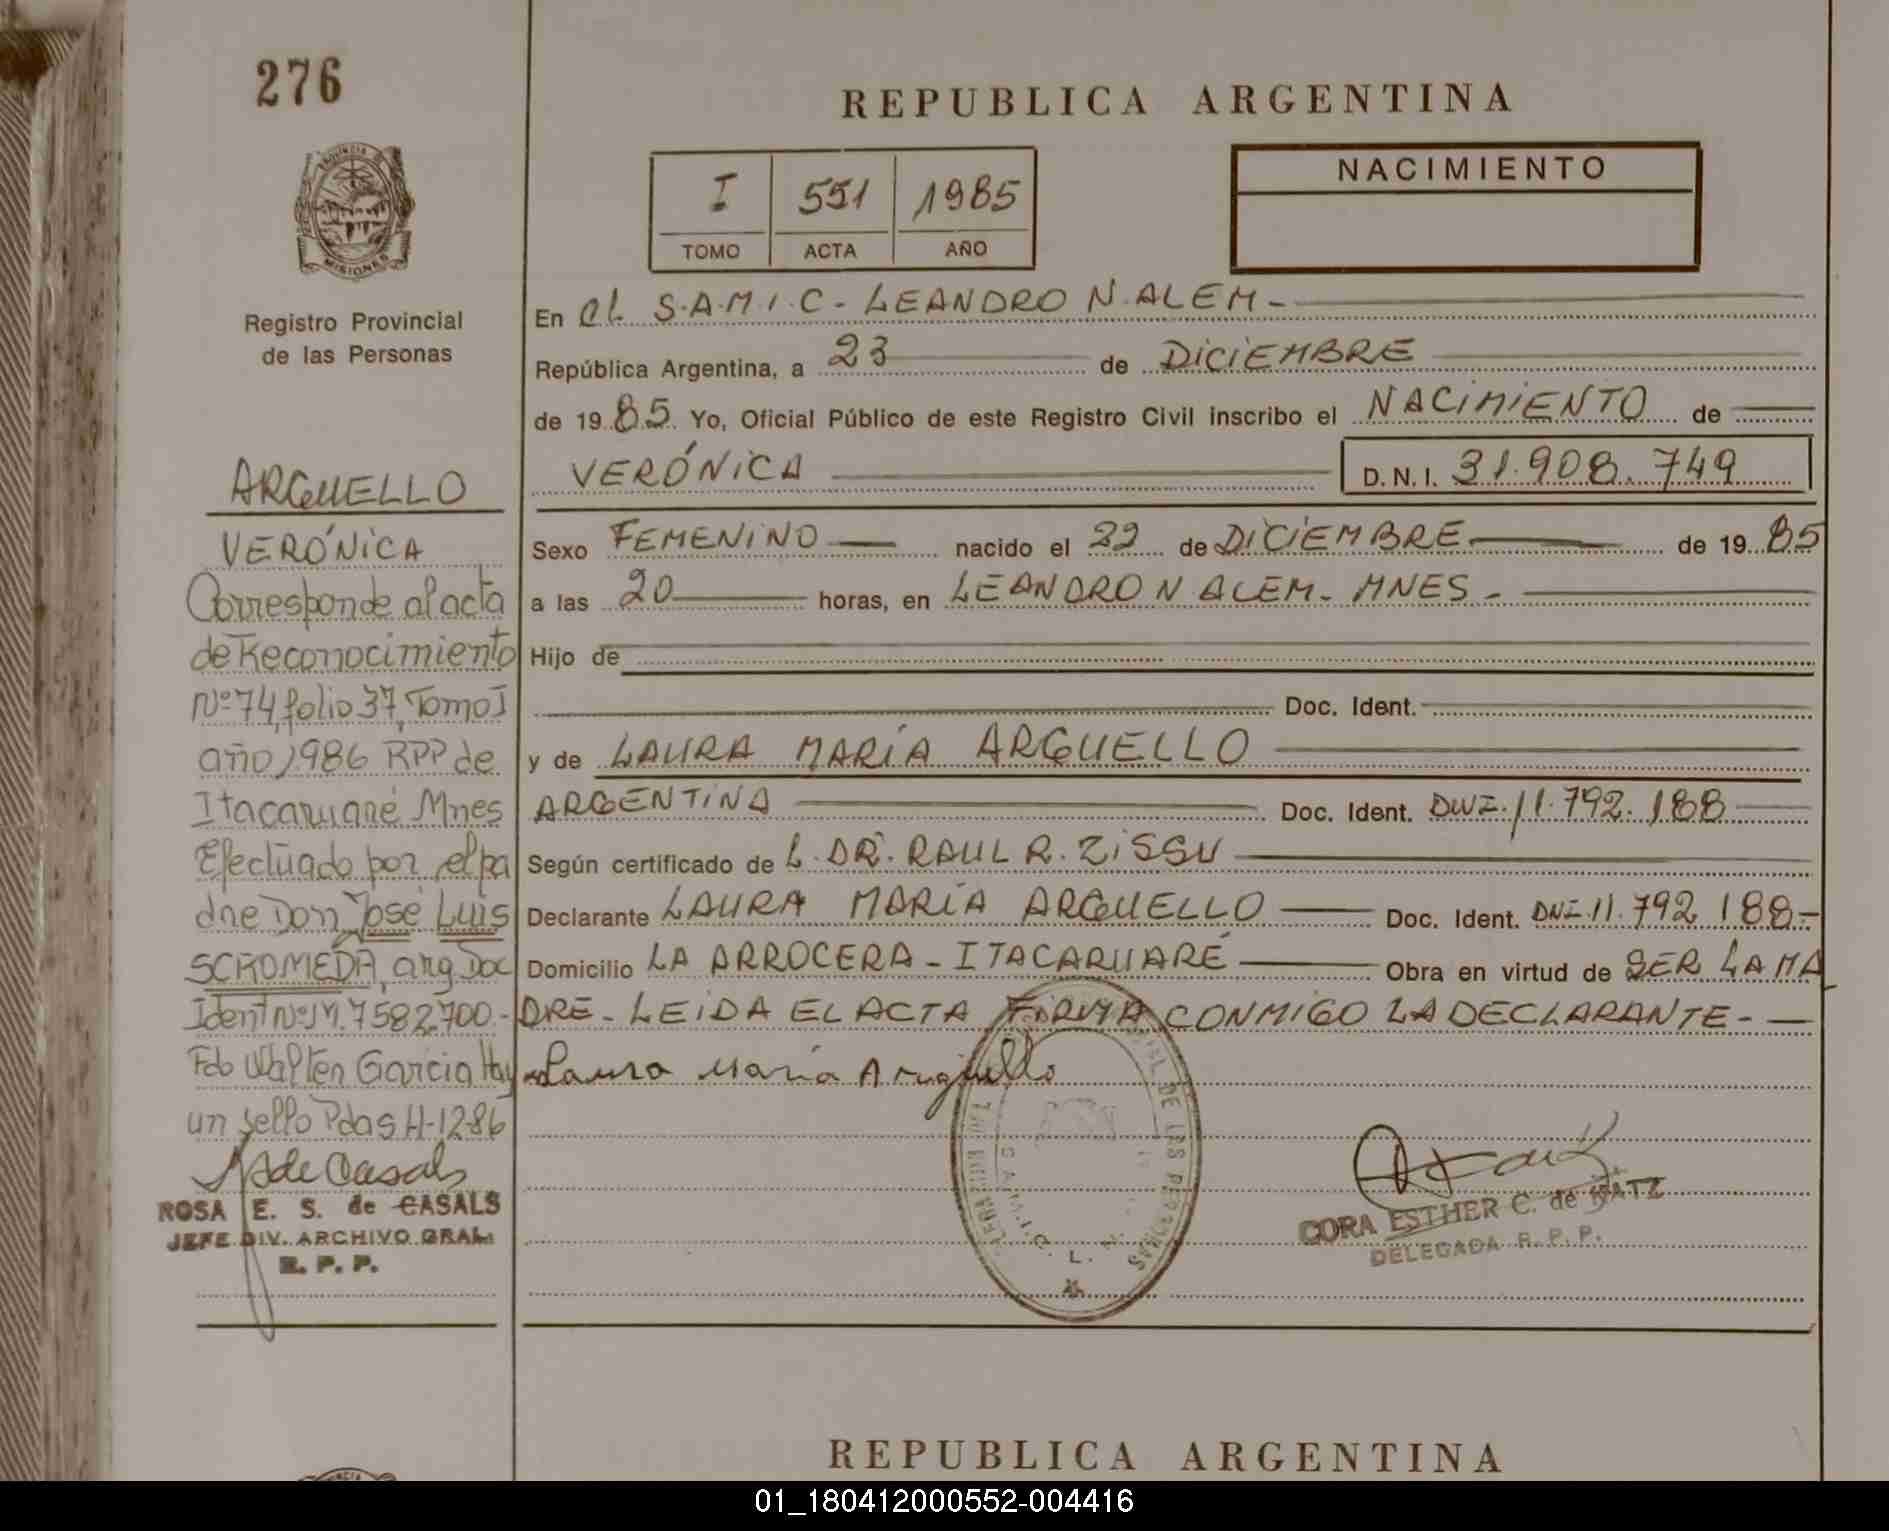 276
PROVINCIA DE
MISIONES
Registro Provincial
de las Personas
ARGUELLO
VERÓNICA
Corresponde al acta
de Reconocimiento
Nº 74, folio 37, Tomo I
año 1986 RPP de
Itacaruaré Mnes
Efectuado por el pa
dre Don José Luis
SCROMEDA, arg Doc
Ident Nº M. 7582.700.-
Fdo Walter Garcia Hay
un sello Pdas 4-12-86
ROSA E. S. de CASALS
JEFE DIV. ARCHIVO GRAL.
R. P. P.
REPUBLICA ARGENTINA
I 551 1985
TOMO ACTA AÑO
NACIMIENTO
En el S.A.M.I.C - LEANDRO N. ALEM -
República Argentina, a 23 de DICIEMBRE
de 1985. Yo, Oficial Público de este Registro Civil inscribo el NACIMIENTO de
VERÓNICA D.N.I. 31.908.749
Sexo FEMENINO nacido el 22 de DICIEMBRE de 1985
a las 20 horas, en LEANDRO N ALEM - MNES -
Hijo de
Doc. Ident.
y de LAURA MARÍA ARGUELLO
ARGENTINA Doc. Ident. DNI. 11.792.188
Según certificado de L. DR. RAUL R. ZISSU
Declarante LAURA MARÍA ARGUELLO Doc. Ident. DNI. 11.792 188-
Domicilio LA ARROCERA - ITACARUARÉ Obra en virtud de SER LA MA
DRE - LEIDA EL ACTA FIRMA CONMIGO LA DECLARANTE -
Laura María Arguello
DE LAS PERSONAS
S.A.M.I.C. L. N.
CORA ESTHER C. de
DELEGADA R. P. P.
REPUBLICA ARGENTINA
01_180412000552-004416